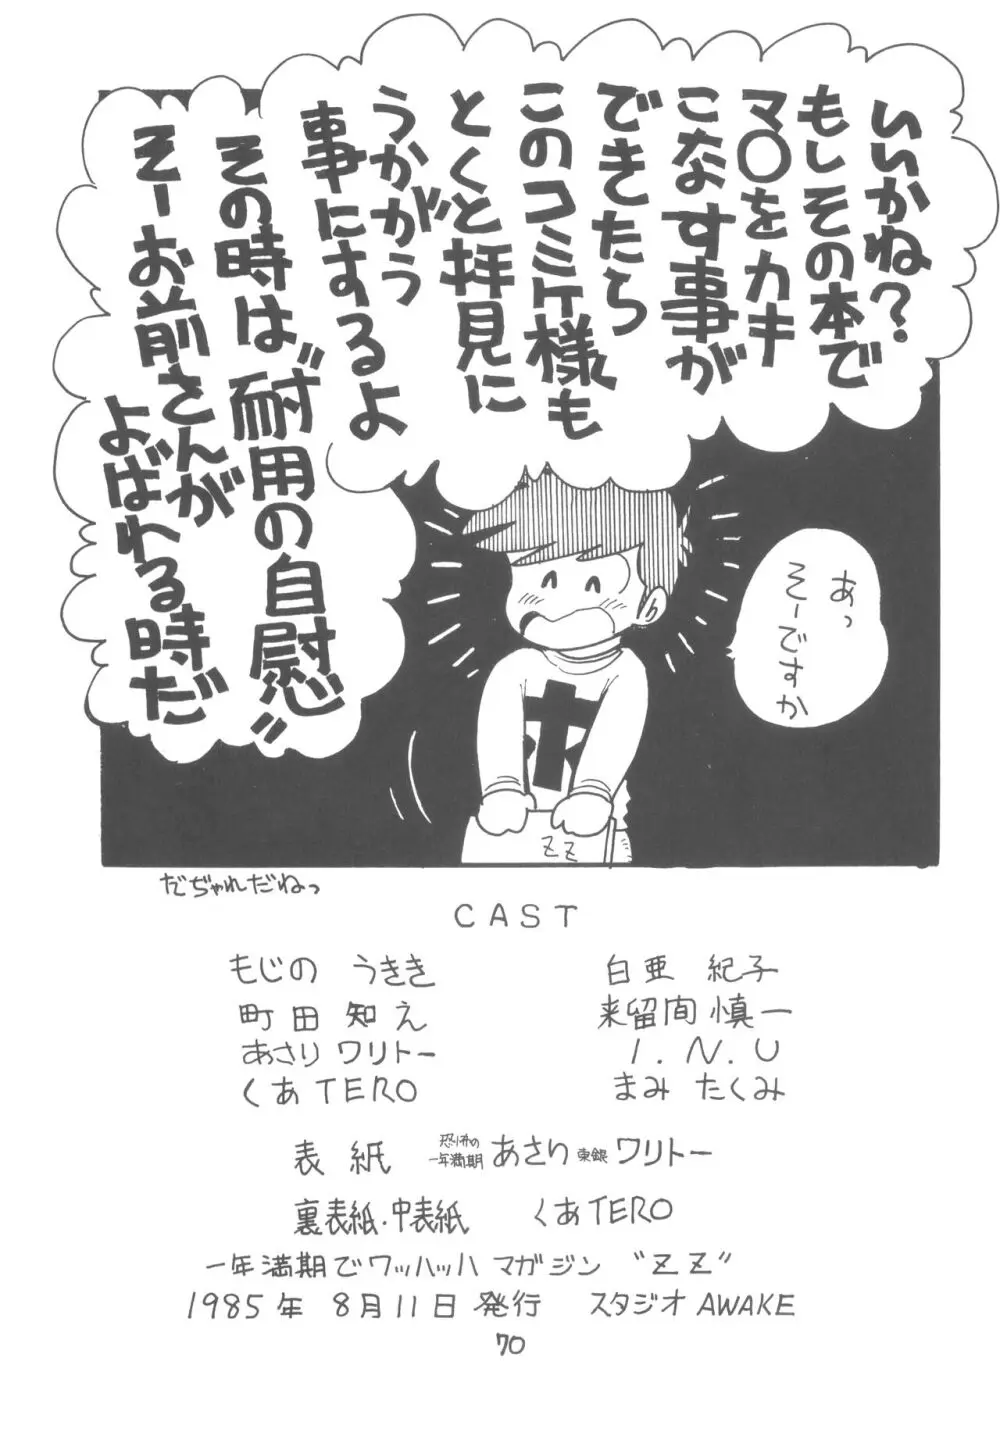 いいかね?
もしその本で
マ〇をカキ
こなす事が
できたら
このコミケ様も
とくと拝見に
うかがう
事にするよ
その時は"耐用の自慰"
そーお前さんが
よばれる時だ
あっ
そーですか
ZZ
だぢゃれだねっ
CAST
もじの うきき
白亜 紀子
町田 知え
来留間 慎一
あさり ワリトー
I.N.U
くあTERO
まみ たくみ
表紙 恐怖の一年満期 あさり 東銀 ワリトー
裏表紙・中表紙 くあTERO
一年満期でワッハッハ マガジン "ZZ"
1985年 8月11日 発行 スタジオ AWAKE
70